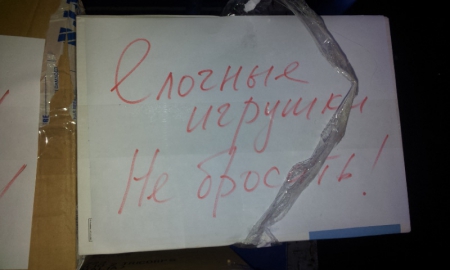 Елочные
игрушки
Не бросать!